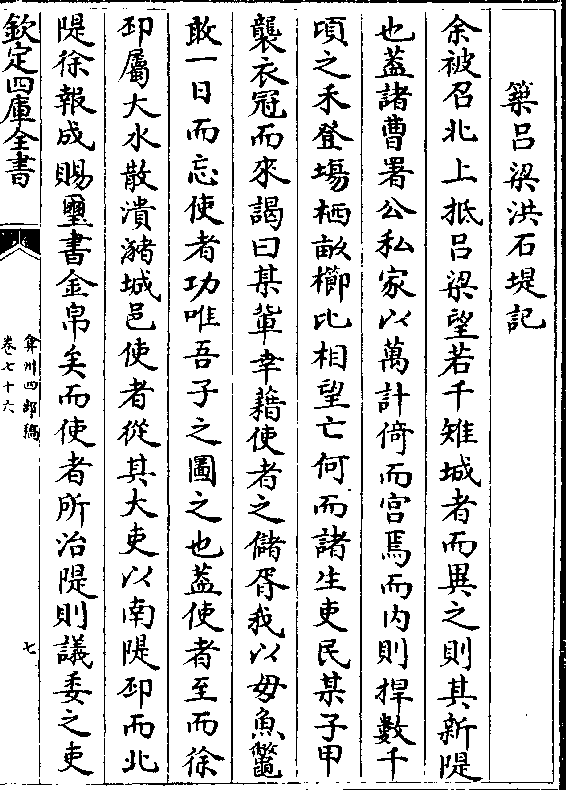 築吕梁洪石堤記
余被召北上抵吕梁望若千雉城者而異之則其新隄
也蓋諸曹署公私家以萬計倚而宫焉而内則捍數千
頃之禾登塲栖畝櫛比相望亡何而諸生吏民某子甲
襲衣冠而來謁曰某輩幸藉使者之儲胥我以毋魚鼈
敢一日而忘使者功唯吾子之圖之也蓋使者至而徐
邳屬大水散潰瀦城邑使者從其大吏以南隄邳而北
隄徐報成賜璽書金帛矣而使者所治隄則議委之吏
欽定四庫全書
弇州四部稿
卷七十六
七